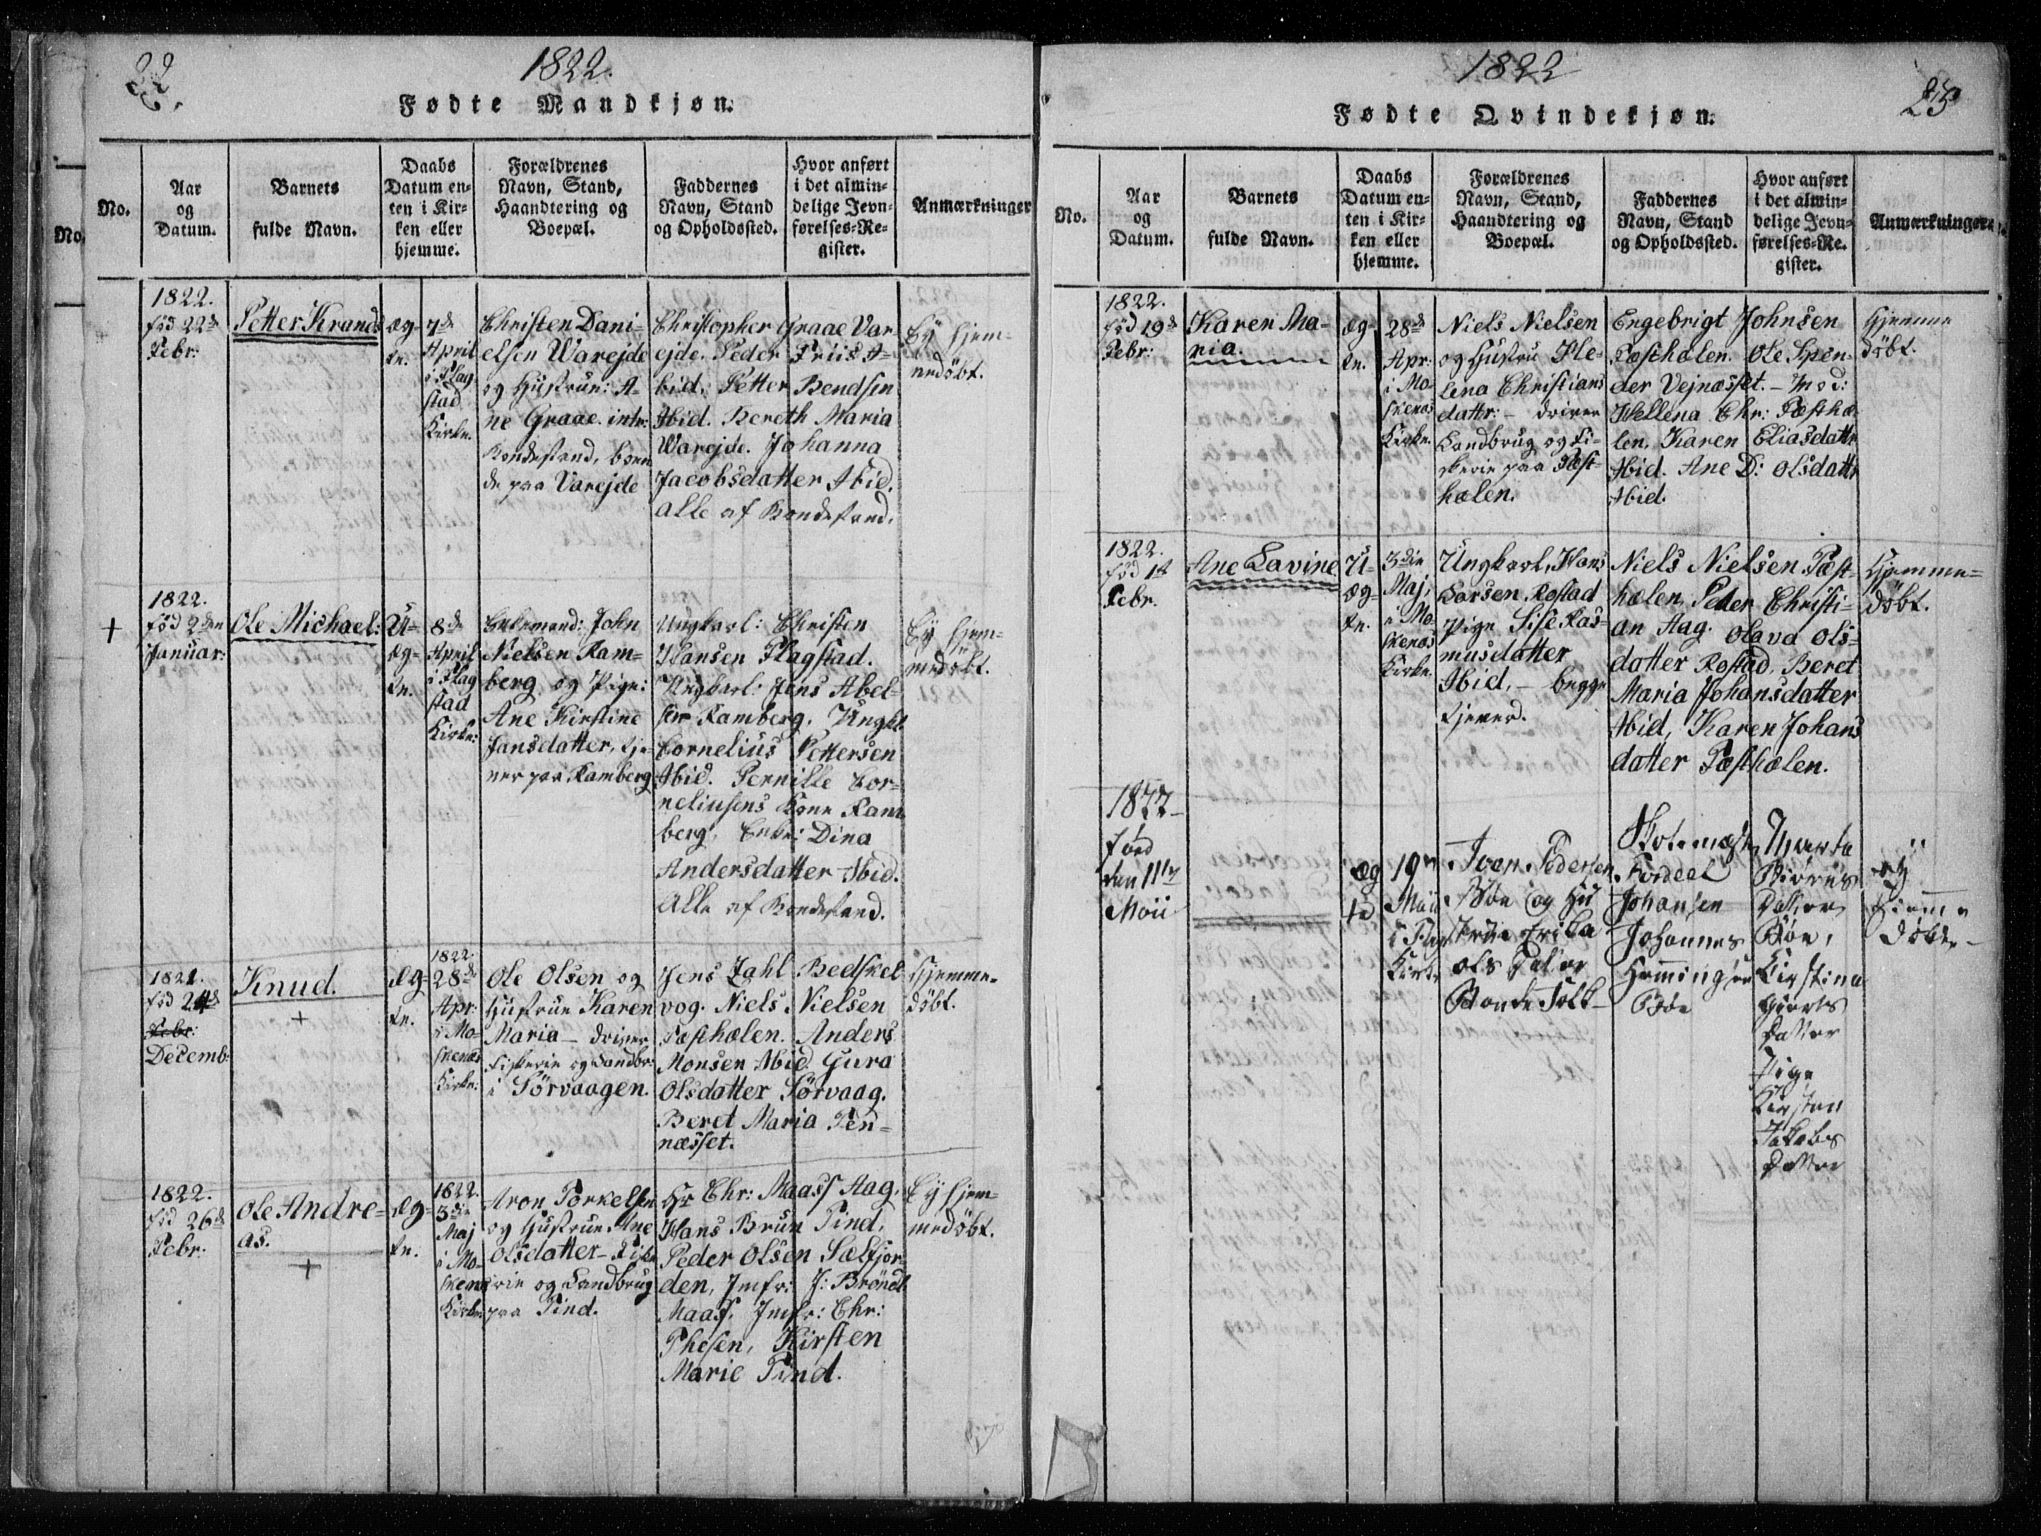 22
1822.
Fødte Mandkjøn.
No.
No.
Aar
og
Datum.
Barnets
fulde Navn.
Daabs
Datum en-
ten i Kir-
ken eller
hjemme.
Forældrenes
Navn, Stand,
Haandtering og
Boepæl.
Faddernes
Navn, Stand
og Opholdssted.
Hvor anført
i det almin-
delige Jevn-
førelses-Re-
gister.
Anmærkninger
1822.
fød 22de
Febr:
Petter Krands
Æg-
te.
7de
April
i Flag
stad
Kirke.
Christen Dani-
elsen Warejde
og Hustrue: A-
ne Graae. intr:
Bondestand, boen
de paa Varejde
Christopher Graae Var
ejde. Peder Friis A-
bid. Petter Bendsen
Ibid. Bereth Maria
Warejde. Johanna
Jacobsdatter Ibid.
alle af Bondestand.
Ej hjem-
medøbt.
+
1822.
fød 2den
Januar:
Ole Michael:
U-
æg-
te.
8de
April
i Flag
stad
Kirke:
Enkemand: John
Nielsen Ram-
berg og Pige:
Ane Kirstine
Jansdatter, tje-
ner paa Ramberg
Ungkarl: Christen
Hansen Flagstad.
Ungkarl: Jens Abel-
sen Ramberg. Ungk:
Cornelius Pettersen
Ibid. Pernille Cor-
neliusens Kone Ram
berg. Enke: Dina
Andersdatter Ibid.
Alle af Bondestand.
Ej hjem-
medøbt.
1821.
fød 24de
Febr:
Decemb
Knud.
+
Æg-
te.
1822.
28de
Apr:
i Mo-
skenæs
Kirke:
Ole Olsen og
Hustrue Karen
Maria - driver
Fiskerie og Landbr:
i Sørvaagen.
Jens Zahl Bedskel
vog. Niels Nielsen
Tæsthælen. Anders
Monsen Ibid. Gura
Olsdatter Sørvaag.
Beret Maria Ten-
næsset.
Hjemme-
døbt.
1822.
fød 26de
Febr.
Ole Andre-
as.
+
Æg-
te.
1822.
3die
Maj
i Mo-
skenæs
Kirke
Aron Torkelsen
og Hustrue Ane
Olsdatter - Fiske
rie og Landbrug
paa Tind.
Hr Chr: Maass Aag,
Hans Brun Tind,
Peder Olsen Sælfjor-
den, Jmfr: J: Brøndl
Maass, Jmfr: Chr:
Thesen, Kirsten
Marie Tind.
Ej hjem-
medøbt.
1822
23
Fødte Qvindekjøn.
No.
Aar
og
Datum.
Barnets
fulde Navn.
Daabs
Datum en-
ten i Kir-
ken eller
hjemme.
Forældrenes
Navn, Stand,
Haandtering og
Boepæl.
Faddernes
Navn, Stand
og Opholdssted.
Hvor anført
i det almin-
delige Jevn-
førelses-Re-
gister.
Anmærkninger.
1822.
fød 19de
Febr:
Karen Ma-
ria.
Æg-
te.
28de
Apr:
i Mo-
skenæs
Kirke.
Niels Nielsen
og Hustru Hle-
lena Christians
datter: - driver
Landbrug og Fi-
skerie paa Tæst-
hælen.
Engebrigt Johnsen
Tæsthælen. Ole Spen-
der Vejnæsset. - Mod:
Hellena Chr: Tæsthæ-
len. Karen Eliasdattr
Ibid. Ane D: Olsdattr
Ibid.
Hjemme
døbt.
1822.
fød 1st
Febr.
Ane Lavine
U-
æg-
te.
3die
Maj,
i Mo-
skenæs
Kirke.
Ungkarl, Hans
Larsen Rostad
Pige Sise Ras-
musdatter
Ibid. - begge
tjener.
Niels Nielsen Tæst-
hælen, Peter Christi-
an Aag. Olava Ols-
datter Rostad, Beret
Maria Johansdatter
Ibid, Karen Johans
datter Tæsthælen.
Hjemme-
døbt.
1822
født
den 11te
Maii
Æg
te
19de
Maii
i Flag
Kirke
Iver Pedersen
Bøe og Hu
strue Erika
Ols Datter
Bonde Folk
Johansen
Johannes
Hemmingsen
Bøe
Datter
Bøe,
Kirstina
Datter
Pige
Kirsten
Jakobs
Datter
ey
Hiemme
døbt